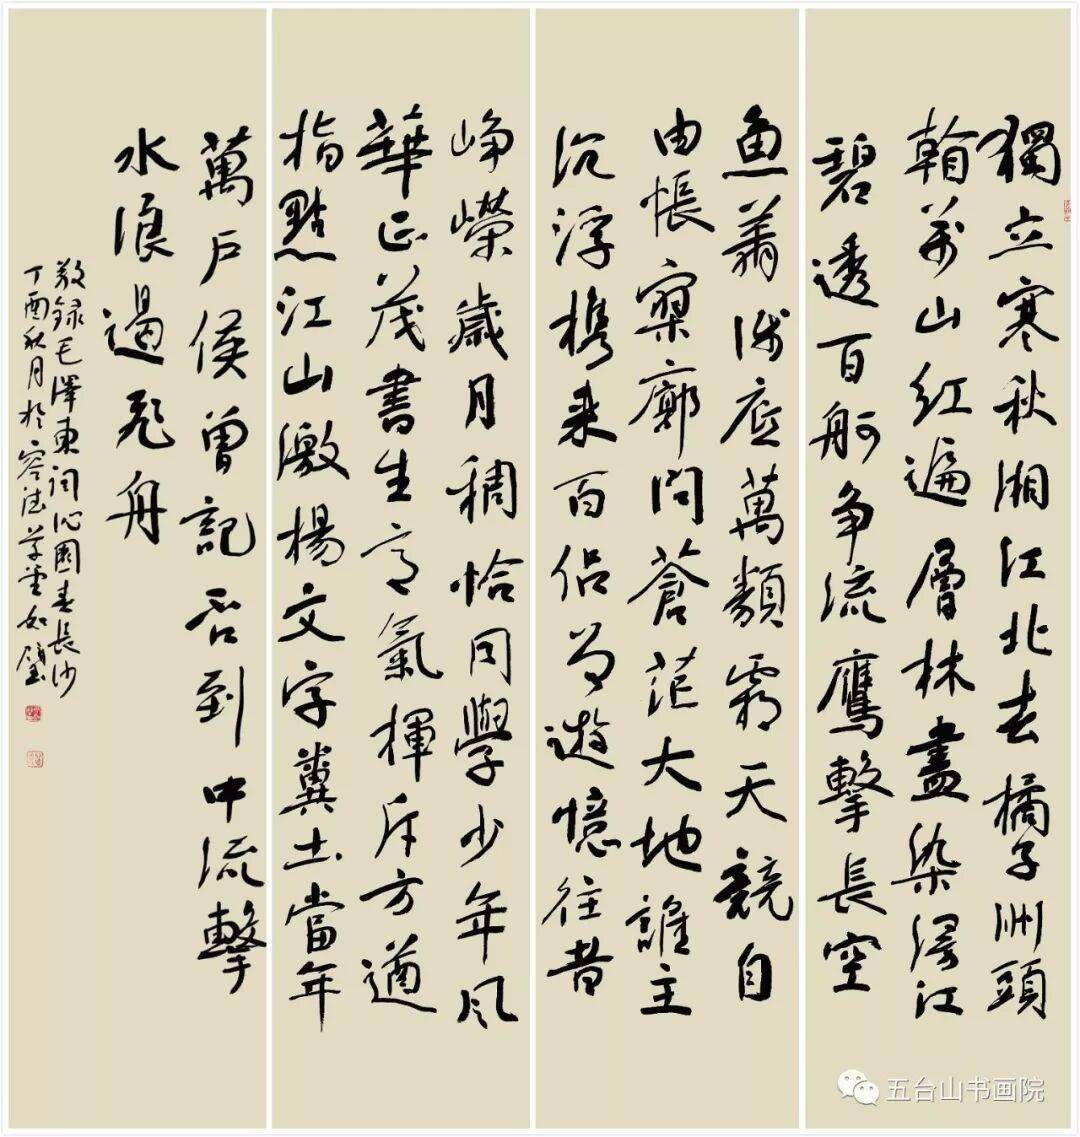 獨立寒秋湘江北去橘子洲頭
看萬山紅遍層林盡染漫江
碧透百舸争流鷹擊長空
魚翔淺底萬類霜天競自
由悵寥廓問蒼茫大地誰主
沉浮携來百侣曾遊憶往昔
崢嶸歲月稠恰同學少年風
華正茂書生意氣揮斥方遒
指點江山激揚文字糞土當年
萬户侯曾記否到中流擊
水浪遏飛舟
敬録毛澤東詞沁園春長沙
丁酉秋月於
五台山书画院